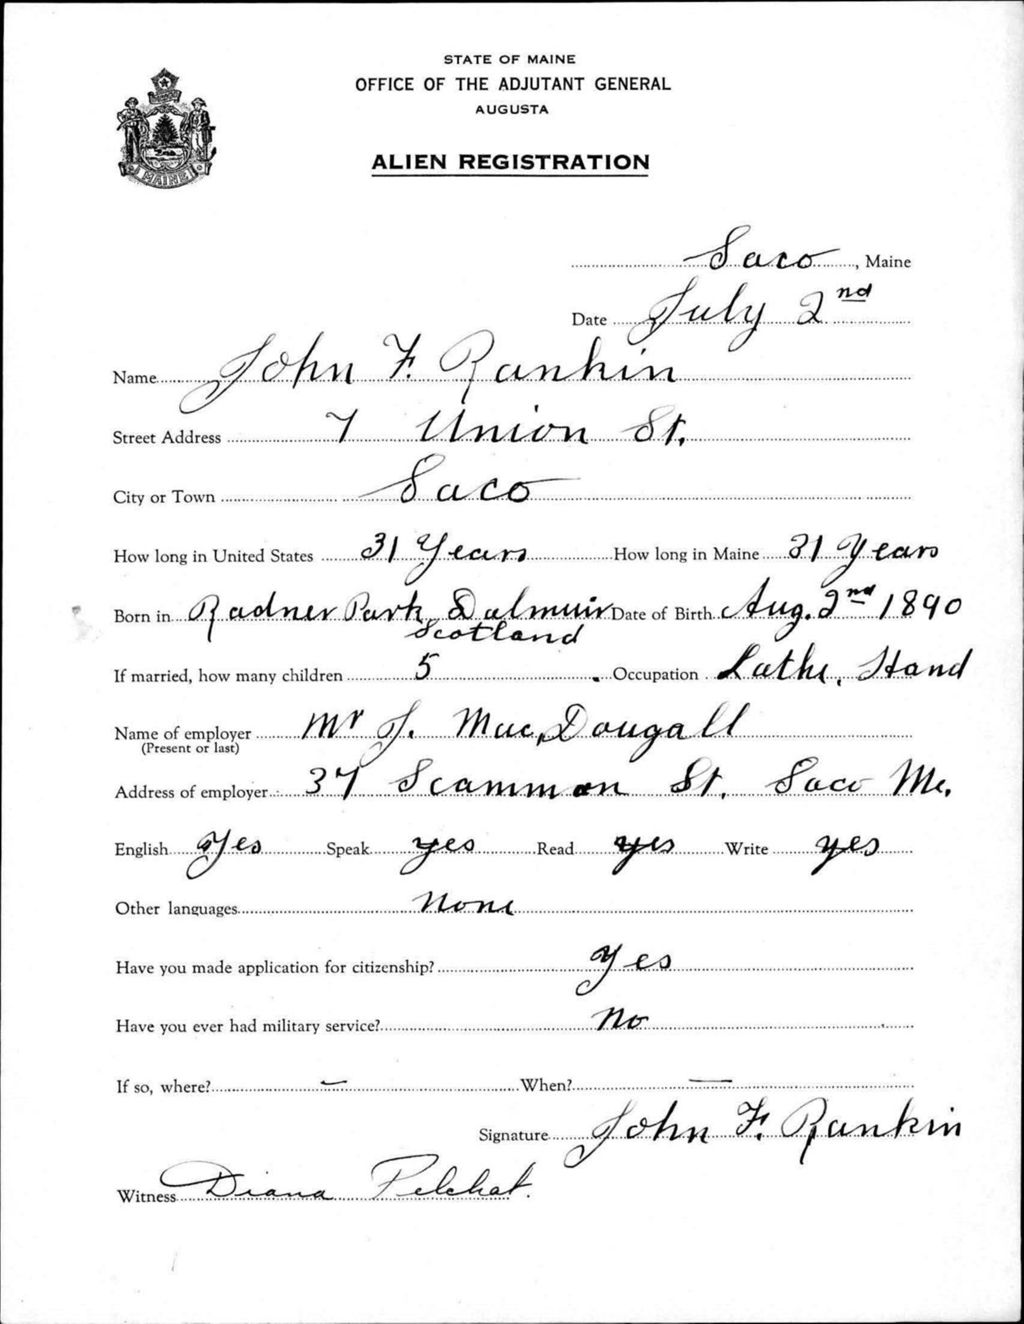 STATE OF MAINE
OFFICE OF THE ADJUTANT GENERAL
AUGUSTA
ALIEN REGISTRATION
MAINE
Saco, Maine
Date July 2nd
Name John F. Rankin
Street Address 7 Union St.
City or Town Saco
How long in United States 31 Years How long in Maine 31 Years
Born in Radner Park, Dalmuir Date of Birth Aug. 2nd 1890
Scotland
If married, how many children 5 Occupation Lathe, Hand
Name of employer Mr J. MacDougall
(Present or last)
Address of employer 37 Scammon St. Saco Me.
English Yes Speak yes Read yes Write yes
Other languages None
Have you made application for citizenship? Yes
Have you ever had military service? No
If so, where? — When? —
Signature John F. Rankin
Witness Diana Pelchat.